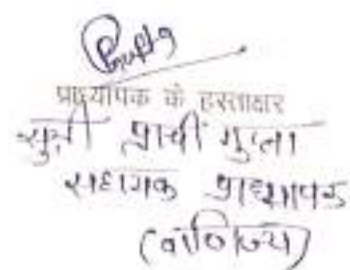 Gupta
प्राध्यापक के हस्ताक्षर
सुश्री प्राची गुप्ता
सहायक प्राध्यापक
(वाणिज्य)